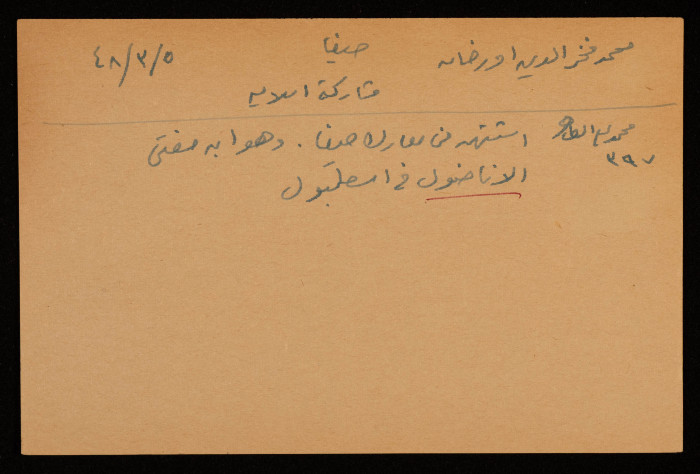 محمد فخر الدين اورخان حيفا ٤٨/٣/٥
مشاركة اسلامية
محمد نمر الهواري استشهد في معارك حيفا. وهو ابن مفتي
٣٩٧
الاناضول في اسطنبول